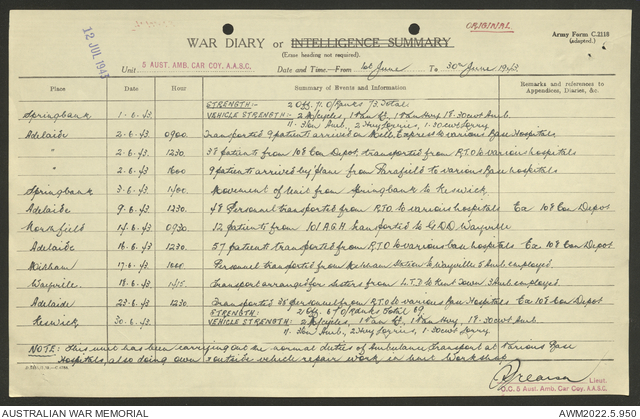 ORIGINAL
12 JUL 1943
WAR DIARY or INTELLIGENCE SUMMARY
(Erase heading not required).
Army Form C.2118
(adapted.)
Unit 5 AUST. AMB. CAR COY. A.A.S.C. Date and Time—From 1st June To 30th June 1943
Place Date Hour Summary of Events and Information Remarks and references to Appendices, Diaries, &c.
STRENGTH:- 2 Off. 71 O/Ranks 73 Total
Springbank 1.6.43 VEHICLE STRENGTH:- 2 M/cycles, 18.30cwt Amb.
2 Hvy Lorries, 1.30cwt Lorry
Adelaide 2.6.43 0900 Transported 9 patients arrived on Melb. Express to various Base Hospitals
" 2.6.43 1230 38 patients from 108 Con Depot transported from R.T.O to various hospitals
" 2.6.43 1600 9 patients arrived by plane from Parafield to various Base hospitals
Springbank 3.6.43 1400 Movement of Unit from Springbank to Keswick.
Adelaide 9.6.43 1230. 48 Personnel transported from R.T.O. to various hospitals Ex 108 Con Depot
Northfield 14.6.43 0930 12 patients from 101 A.G.H. transported to G.D.D. Wayville
Adelaide 16.6.43 1230. 57 patients transported from R.T.O to various base hospitals Ex 108 Con Depot.
Mitcham 17.6.43 1000 Personnel transported from Mitcham Station to Wayville 5 Amb employed.
Wayville. 18.6.43 1415 Transport arranged for Sisters from L.T.D to Kent Town 3 Amb employed
Adelaide 23.6.43 1230 Transported 35 personnel from R.T.O to various Base Hospitals Ex 108 Con Depot
STRENGTH:- 2 Off. 67 O/Ranks Total 69
Keswick 30.6.43. VEHICLE STRENGTH:- 2 M/cycles, 18.30cwt Amb.
2 Hvy Lorries, 1.30cwt Lorry
NOTE:- This unit has been carrying out the normal duties of Ambulance Transport at various Base
Hospitals, also doing own & outside vehicle repair work in unit Workshop
Lieut.
O.C. 5 AUST. AMB. CAR COY. A.A.S.C.
AUSTRALIAN WAR MEMORIAL AWM2022.5.950